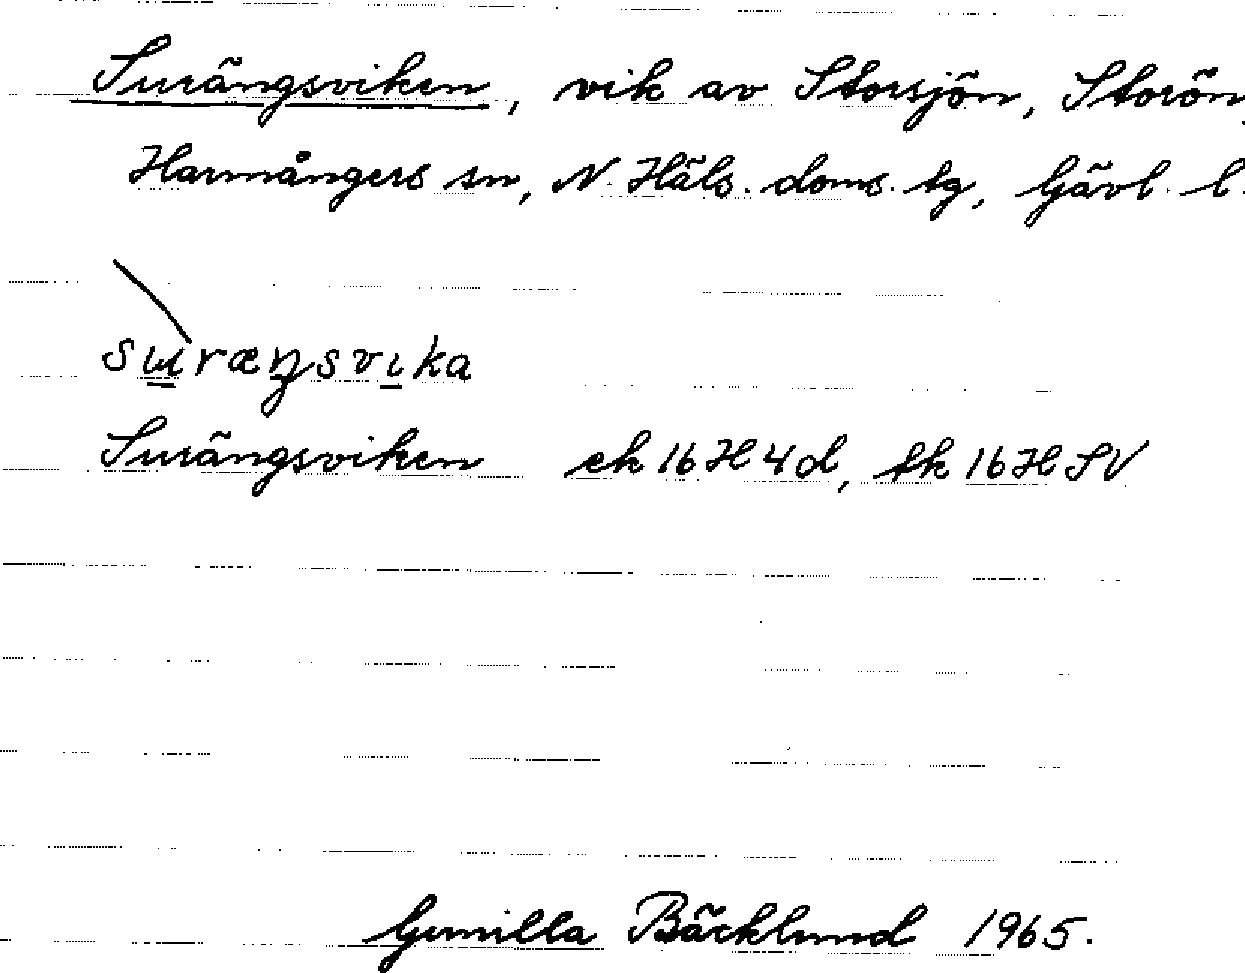 Surängsviken, vik av Storsjön, Storön,
Harmångers sn, N. Häls. doms. tg, Gävl. l.
suræŋsvika
Surängsviken ek 16H4d, tk 16H SV
Gunilla Bäcklund 1965.